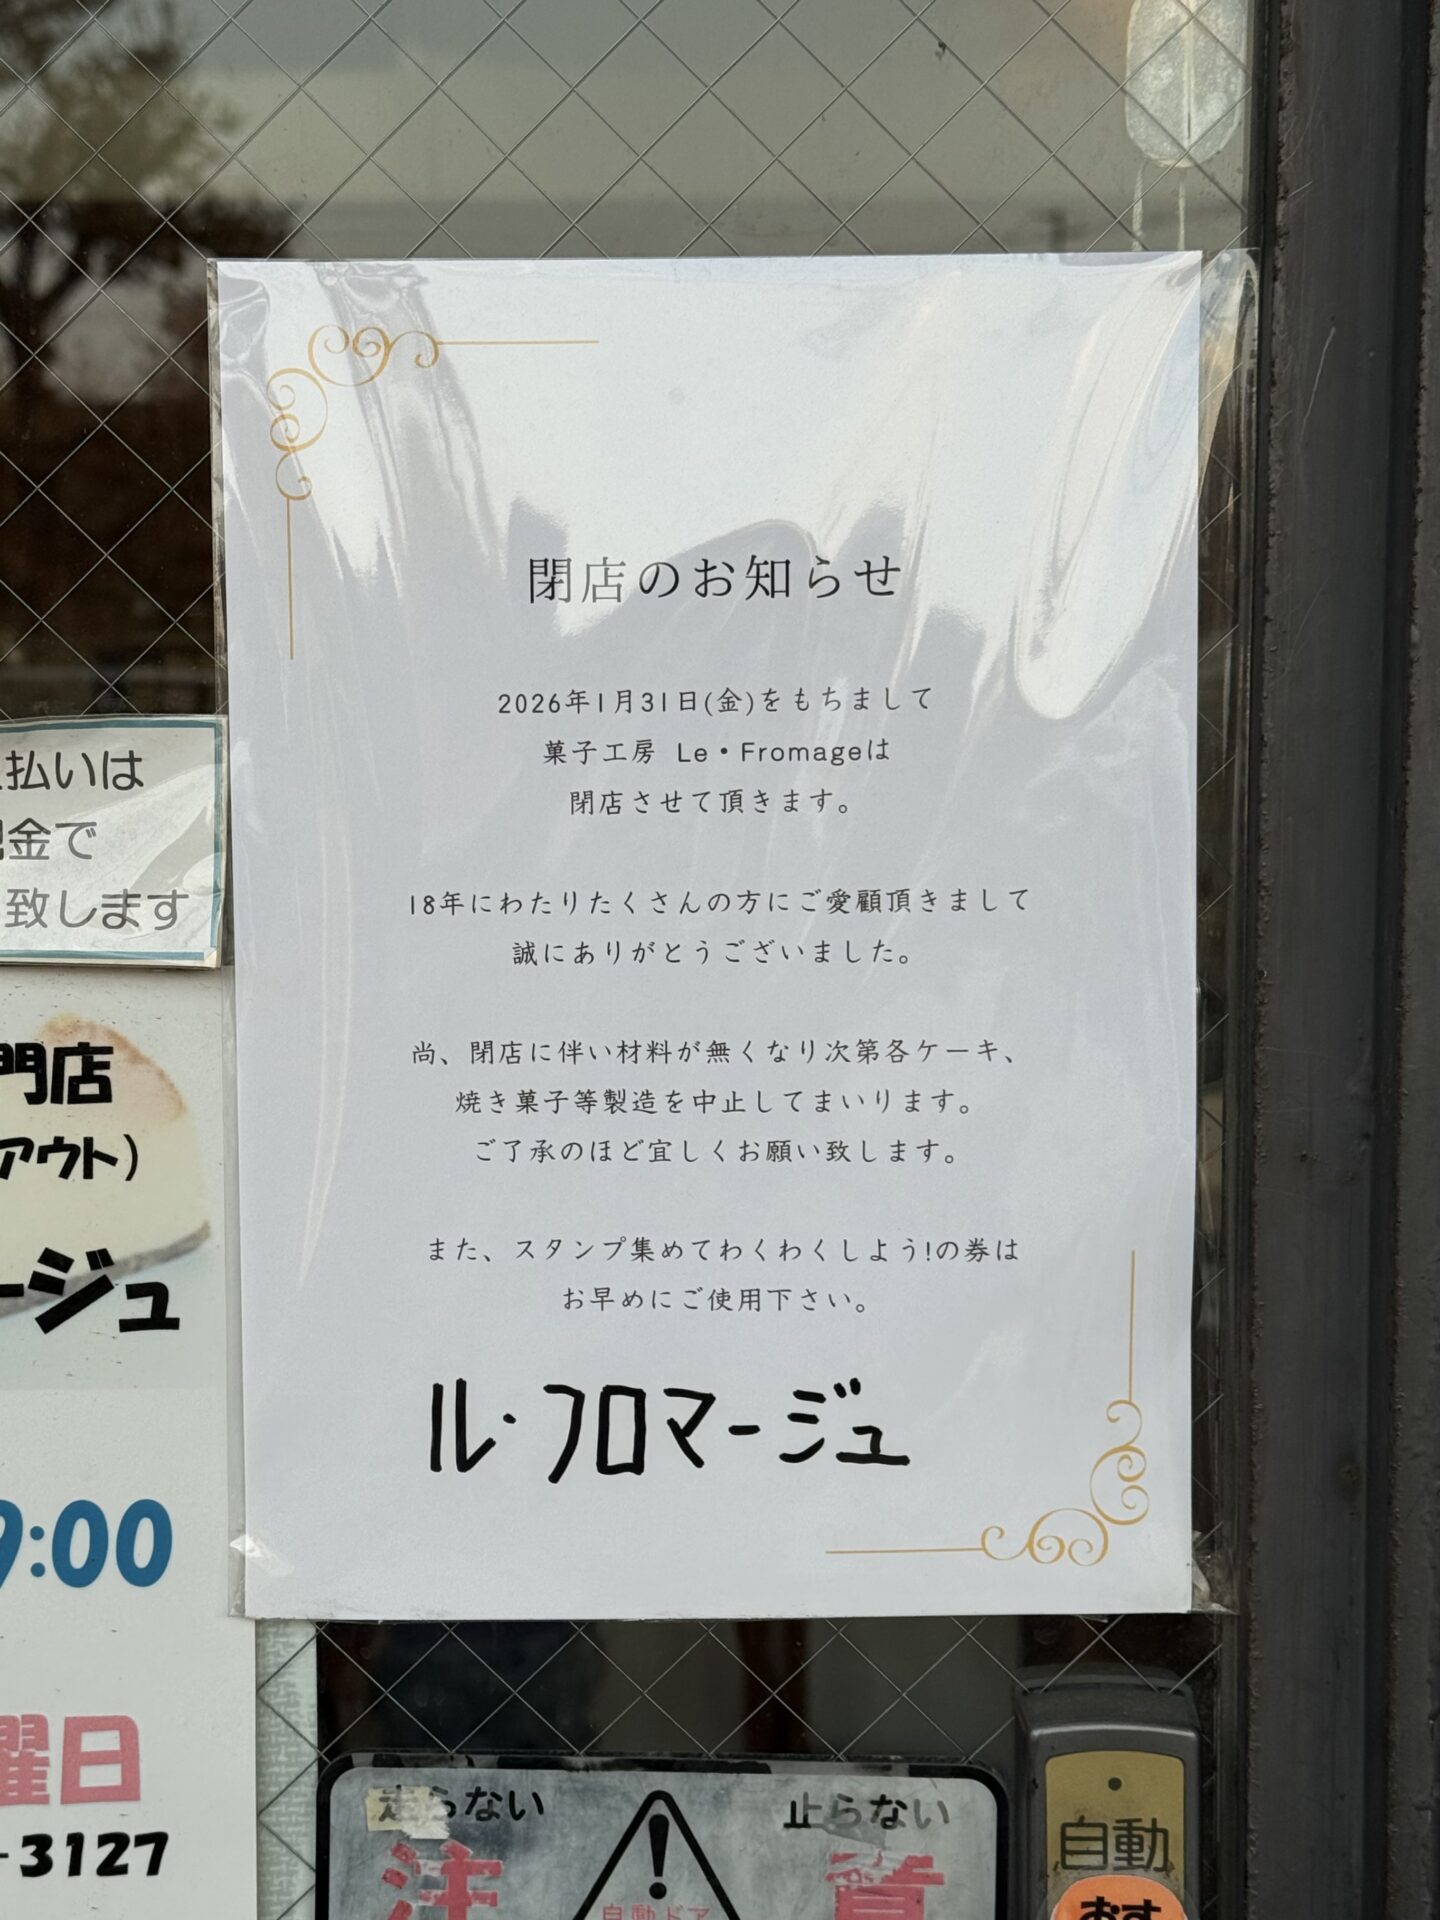 閉店のお知らせ
2026年1月31日(金)をもちまして
菓子工房 Le・Fromageは
閉店させて頂きます。
18年にわたりたくさんの方にご愛顧頂きまして
誠にありがとうございました。
尚、閉店に伴い材料が無くなり次第各ケーキ、
焼き菓子等製造を中止してまいります。
ご了承のほど宜しくお願い致します。
また、スタンプ集めてわくわくしよう!の券は
お早めにご使用下さい。
ル・フロマージュ
払いは
金で
致します
門店
アウト)
ージュ
9:00
曜日
-3127
走らない
止らない
注
自動ドア
自動
おす